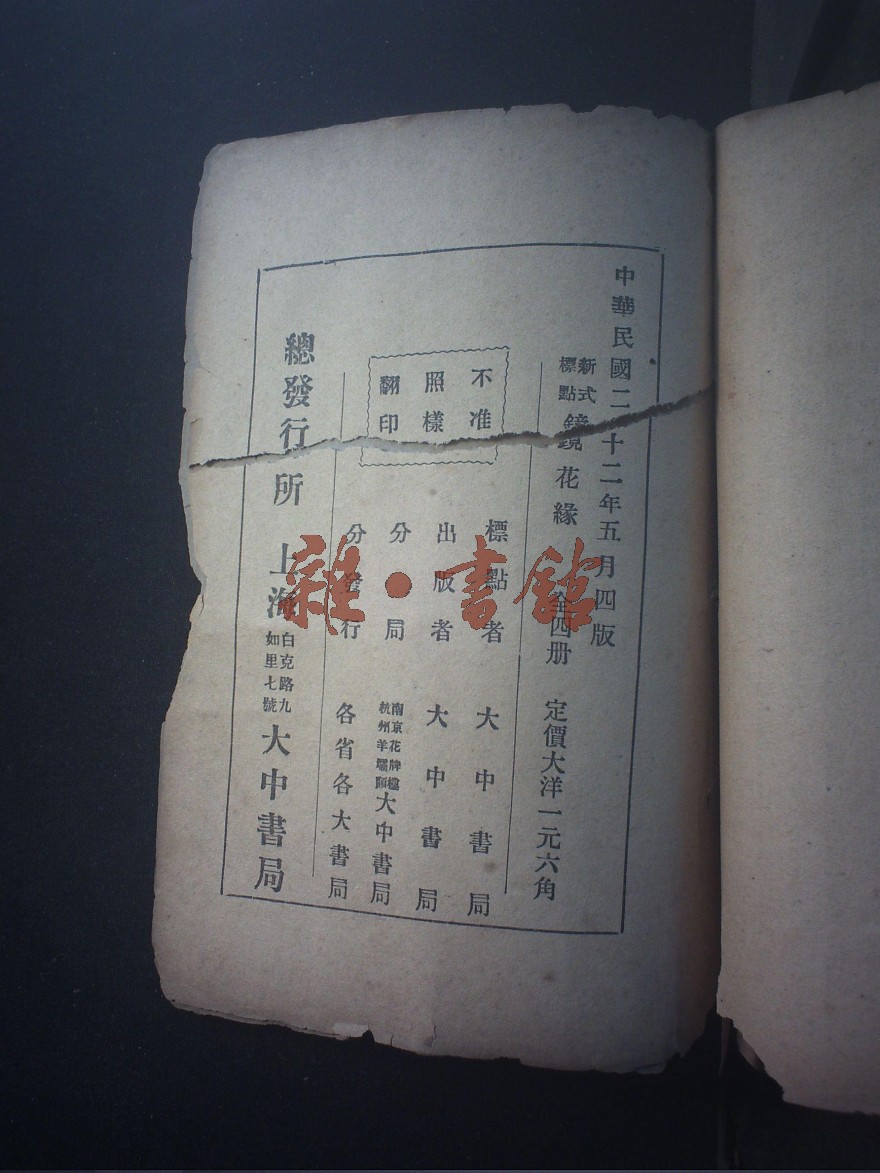 中華民國二十二年五月四版
新式標點鏡花緣 全四册 定價大洋一元六角
不准
照樣
翻印
標點者 大中書局
出版者 大中書局
分局 南京花牌樓杭州羊壩頭大中書局
分發行 各省各大書局
總發行所 上海白克路九如里七號大中書局
雜·書館